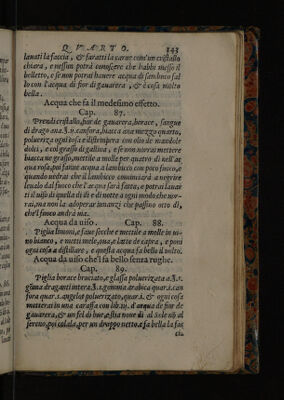 QVARTO. 143
lauati la faccia, & faratti la carne com'un cristallo
chiara, e nessun potrà conoscere che habbi messo il
belletto, e se non potrai hauere acqua di sambuco fal
lo con l'acqua di fior di gauarera, & è cosa molto
bella.
Acqua che fa il medesimo effetto.
Cap. 87.
Prendi cristallo, fior de gauarera, borace, sangue
di drago ana.
polueriza ogni cosa e distempera con olio de mandole
dolci, e col grasso di gallina, e se non uuoi mettere
biacca ne grasso, mettile a molle per quatro dì nell'ac
qua rosa, poi fanne acqua a lambicco con poco fuoco, e
quando uedrai che il lambicco comincierà a uenire
leualo dal fuoco che l'acqua sarà fatta, e potrai lauar
ti il uiso di quella di dì e di notte a ogni modo che uor
rai, ma non la adoperar innanzi che passino otto dì,
che'l fuoco andrà uia.
Acqua da uiso. Cap. 88.
Piglia limoni, e faue secche e mettile a molle in ui
no bianco, e metti mele, oua, e latte de capra, e poni
ogni cosa a distillare, e questa acqua fa bello il uolto.
Acqua da uiso che'l fa bello senza rughe.
Cap. 89.
Piglia borace brusciato, e glassa poluerizata
gũma draganti intera gomma arabica
fora poluerizato, & ogni cosa
metterai in una caraffa con lib. d'acqua de fior de
gauarera, & un fel di bue, e stia noue dì al Sole nẽ al
sereno, poi colala, per un drappo netto, e fa bella la fac
cia.